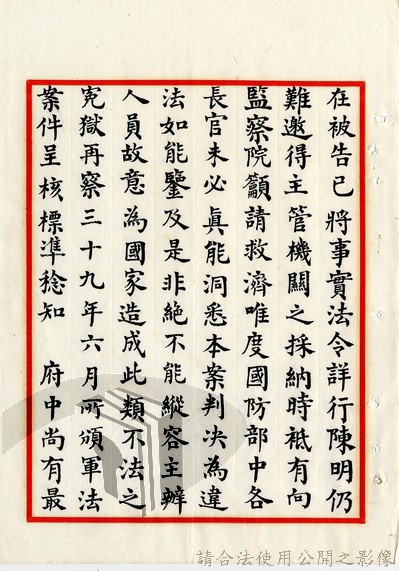 在被告已將事實法令詳行陳明仍
難邀得主管機關之採納時祗有向
監察院籲請救濟唯度國防部中各
長官未必真能洞悉本案判決為違
法如能鑒及是非絕不能縱容主辦
人員故意為國家造成此類不法之
冤獄再察三十九年六月所頒軍法
案件呈核標準稔知　府中尚有最
請合法使用公開之影像